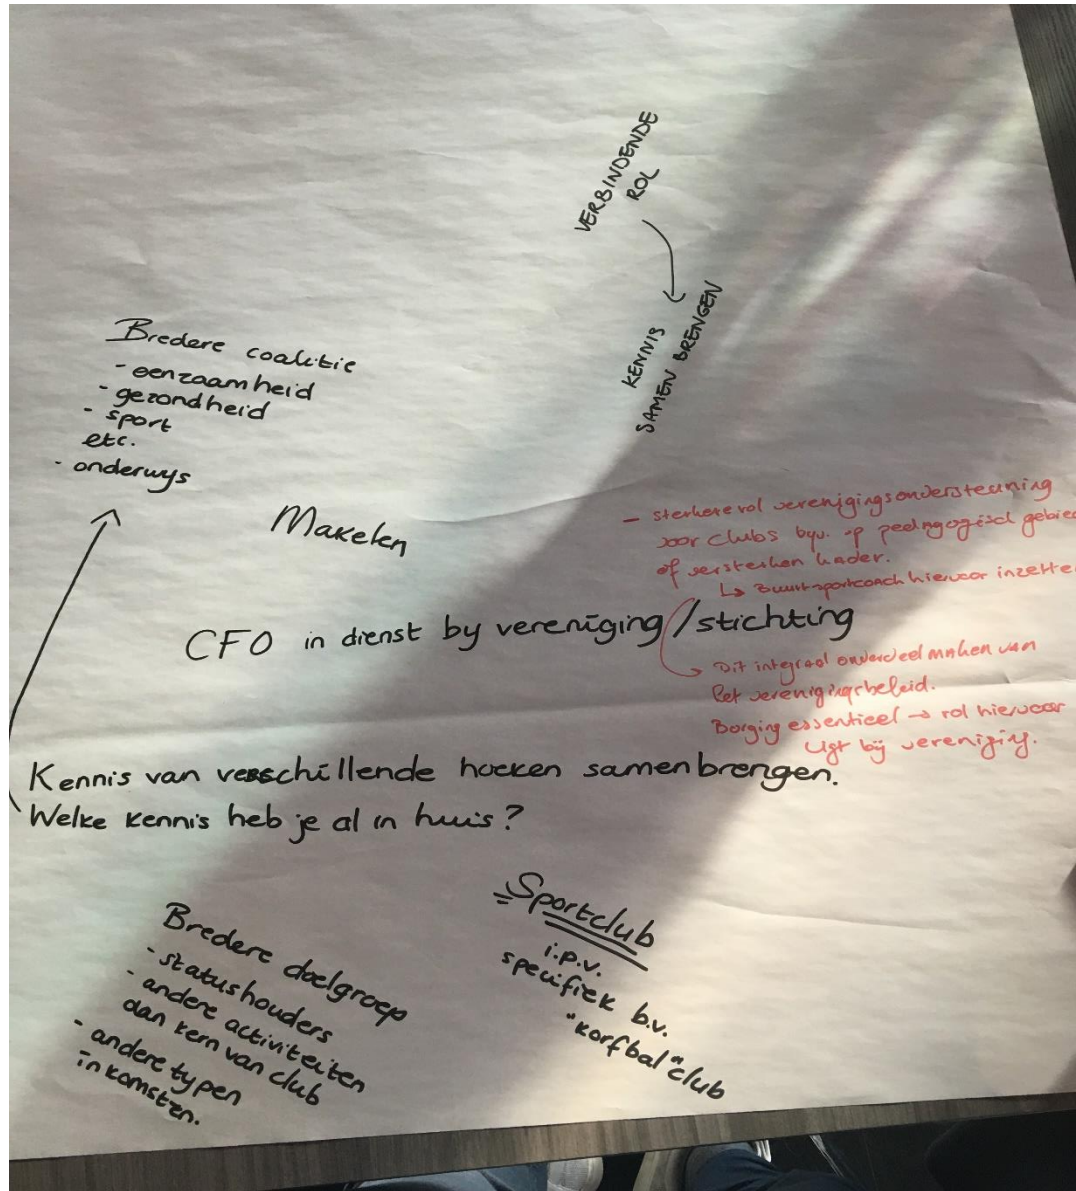 VERBINDENDE
ROL
KENNIS
SAMEN BRENGEN
Bredere coalitie
- eenzaamheid
- gezondheid
- sport
etc.
- onderwys
Makelen
- sterkere rol verenigingsondersteuning
voor clubs bijv. op pedagogisch gebied
of versterken kader.
↳ Buurtsportcoach hiervoor inzetten
CFO in dienst by vereniging/stichting
Dit integraal onderdeel maken van
het verenigingsbeleid.
Borging essentieel → rol hiervoor
ligt bij vereniging.
Kennis van verschillende hoeken samenbrengen.
Welke kennis heb je al in huis?
Bredere doelgroep
- statushouders
- andere activiteiten
dan kern van club
- andere typen
inkomsten.
Sportclub
i.p.v.
specifiek b.v.
"korfbal" club